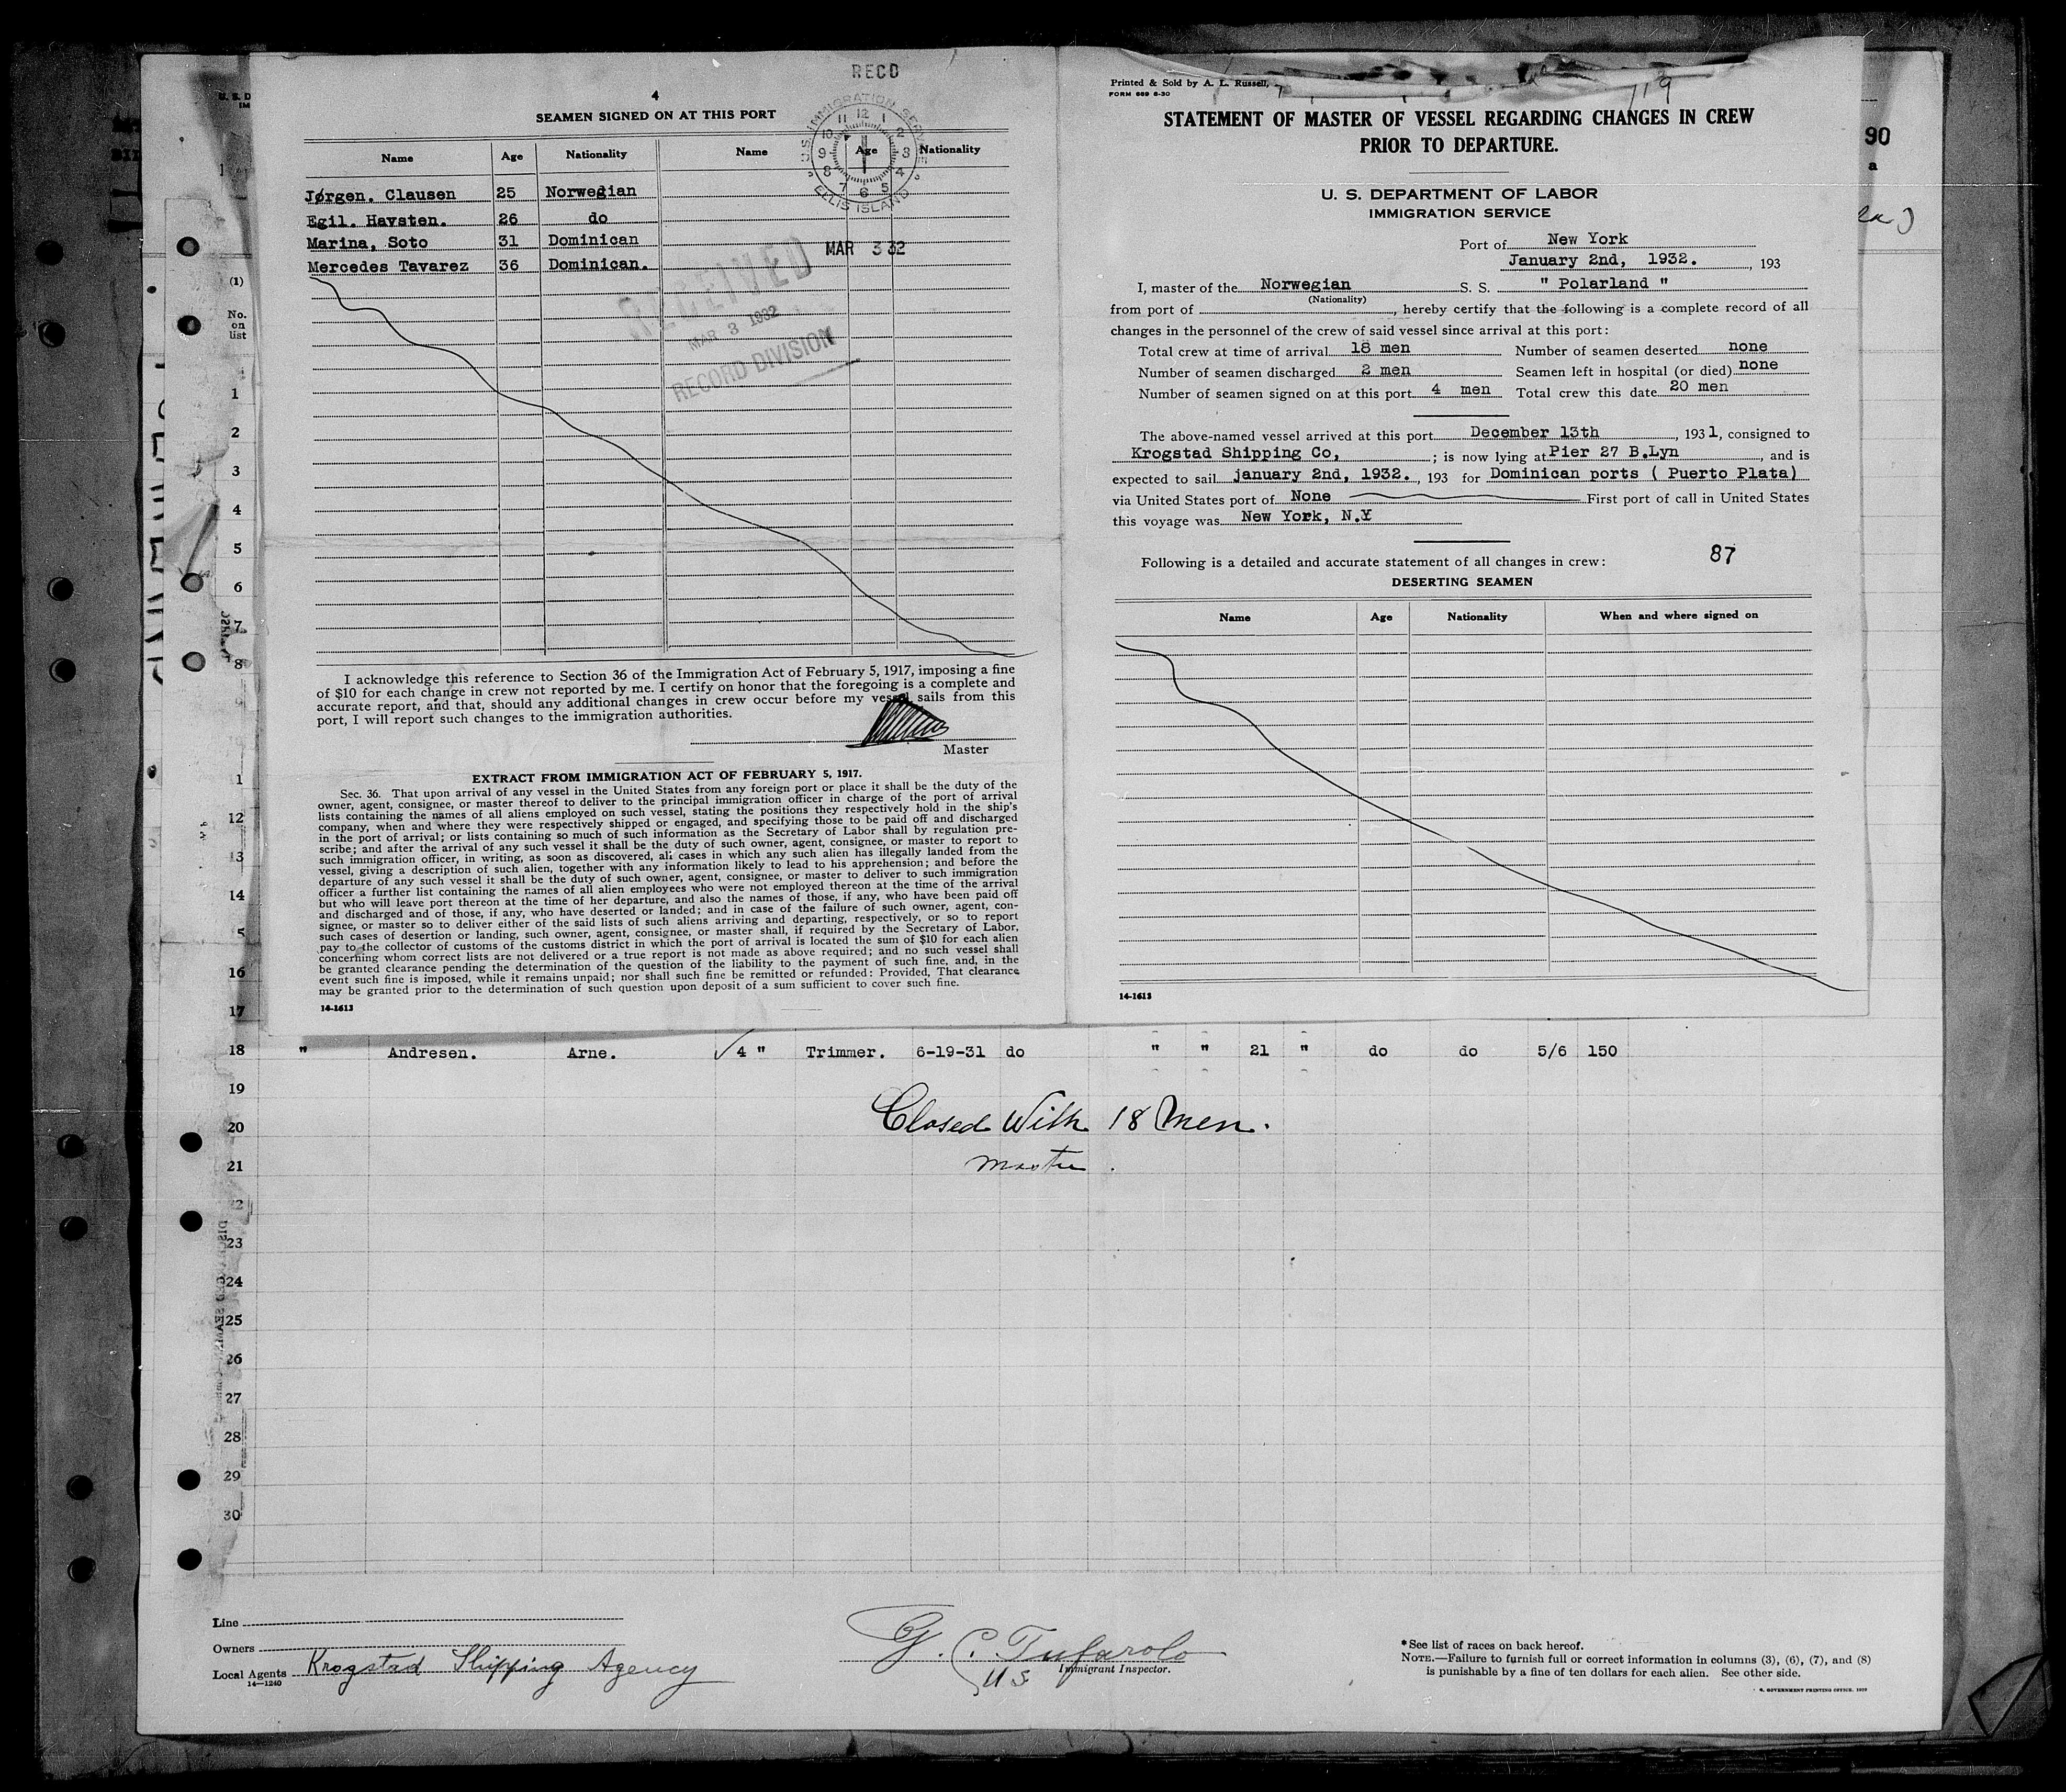 4
RECD
SEAMEN SIGNED ON AT THIS PORT
U. S. IMMIGRATION SERVICE
ELLIS ISLAND
12 1 2 3 4 5 6 7 8 9 10 11
Name Age Nationality Name Age Nationality
Jørgen. Clausen 25 Norwegian
Egil. Havsten. 26 do
Marina, Soto 31 Dominican
Mercedes Tavarez 36 Dominican.
MAR 3 32
RECEIVED
MAR 3 1932
RECORD DIVISION
I acknowledge this reference to Section 36 of the Immigration Act of February 5, 1917, imposing a fine
of $10 for each change in crew not reported by me. I certify on honor that the foregoing is a complete and
accurate report, and that, should any additional changes in crew occur before my vessel sails from this
port, I will report such changes to the immigration authorities.
Master
EXTRACT FROM IMMIGRATION ACT OF FEBRUARY 5, 1917.
Sec. 36. That upon arrival of any vessel in the United States from any foreign port or place it shall be the duty of the
owner, agent, consignee, or master thereof to deliver to the principal immigration officer in charge of the port of arrival
lists containing the names of all aliens employed on such vessel, stating the positions they respectively hold in the ship's
company, when and where they were respectively shipped or engaged, and specifying those to be paid off and discharged
in the port of arrival; or lists containing so much of such information as the Secretary of Labor shall by regulation pre-
scribe; and after the arrival of any such vessel it shall be the duty of such owner, agent, consignee, or master to report to
such immigration officer, in writing, as soon as discovered, all cases in which any such alien has illegally landed from the
vessel, giving a description of such alien, together with any information likely to lead to his apprehension; and before the
departure of any such vessel it shall be the duty of such owner, agent, consignee, or master to deliver to such immigration
officer a further list containing the names of all alien employees who were not employed thereon at the time of the arrival
but who will leave port thereon at the time of her departure, and also the names of those, if any, who have been paid off
and discharged and of those, if any, who have deserted or landed; and in case of the failure of such owner, agent, con-
signee, or master so to deliver either of the said lists of such aliens arriving and departing, respectively, or so to report
such cases of desertion or landing, such owner, agent, consignee, or master shall, if required by the Secretary of Labor,
pay to the collector of customs of the customs district in which the port of arrival is located the sum of $10 for each alien
concerning whom correct lists are not delivered or a true report is not made as above required; and no such vessel shall
be granted clearance pending the determination of the question of the liability to the payment of such fine, and, in the
event such fine is imposed, while it remains unpaid; nor shall such fine be remitted or refunded: Provided, That clearance
may be granted prior to the determination of such question upon deposit of a sum sufficient to cover such fine.
14-1613
Printed & Sold by A. L. Russell,
FORM 689 6-30
119
STATEMENT OF MASTER OF VESSEL REGARDING CHANGES IN CREW
PRIOR TO DEPARTURE.
U. S. DEPARTMENT OF LABOR
IMMIGRATION SERVICE
Port of New York
January 2nd, 1932. , 193
I, master of the Norwegian S. S. " Polarland "
(Nationality)
from port of , hereby certify that the following is a complete record of all
changes in the personnel of the crew of said vessel since arrival at this port:
Total crew at time of arrival 18 men Number of seamen deserted none
Number of seamen discharged 2 men Seamen left in hospital (or died) none
Number of seamen signed on at this port 4 men Total crew this date 20 men
The above-named vessel arrived at this port December 13th , 1931, consigned to
Krogstad Shipping Co, ; is now lying at Pier 27 B.Lyn , and is
expected to sail january 2nd, 1932. , 193 for Dominican ports ( Puerto Plata)
via United States port of None First port of call in United States
this voyage was New York, N.Y
Following is a detailed and accurate statement of all changes in crew: 87
DESERTING SEAMEN
Name Age Nationality When and where signed on
14-1613
90
a
(1)
No.
on
list
1
2
3
4
5
6
7
8
1
12
13
14
5
16
17
18 " Andresen. Arne. 4 " Trimmer. 6-19-31 do " " 21 " do do 5/6 150
19
20 Closed With 18 Men.
21 Master.
22
23
24
25
26
27
28
29
30
Line
Owners
Local Agents Krogstad Shipping Agency
14-1240
G. C. Tufarolo
U S Immigrant Inspector.
*See list of races on back hereof.
NOTE.—Failure to furnish full or correct information in columns (3), (6), (7), and (8)
is punishable by a fine of ten dollars for each alien. See other side.
GOVERNMENT PRINTING OFFICE